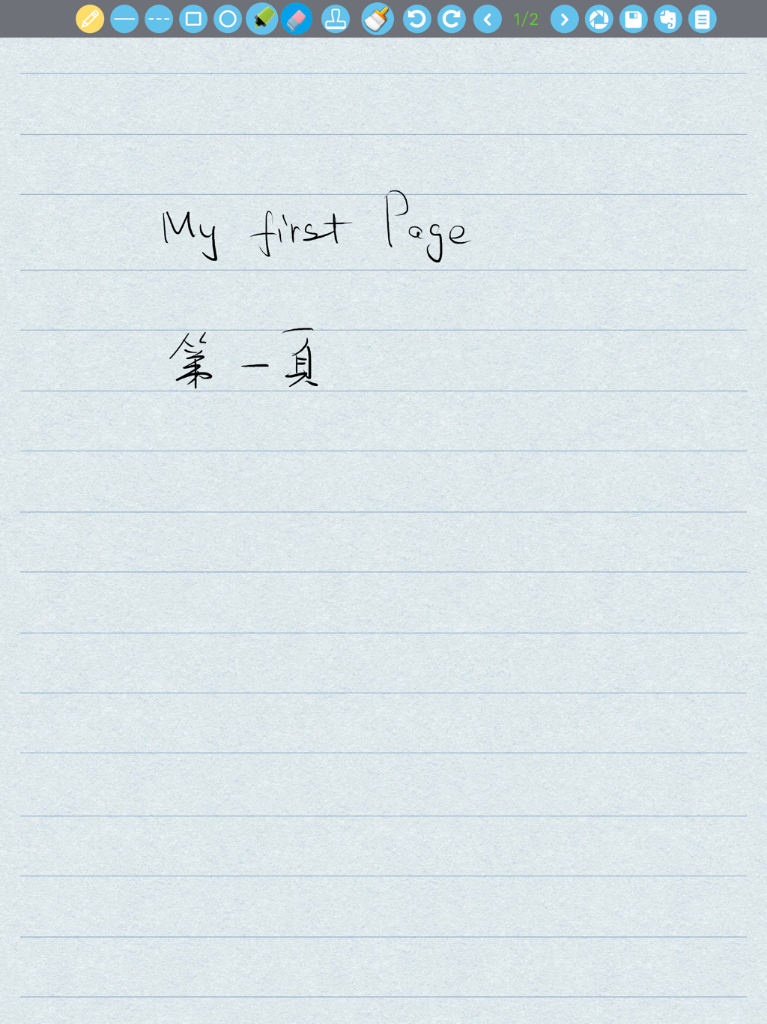 1/2
My first Page
第一頁